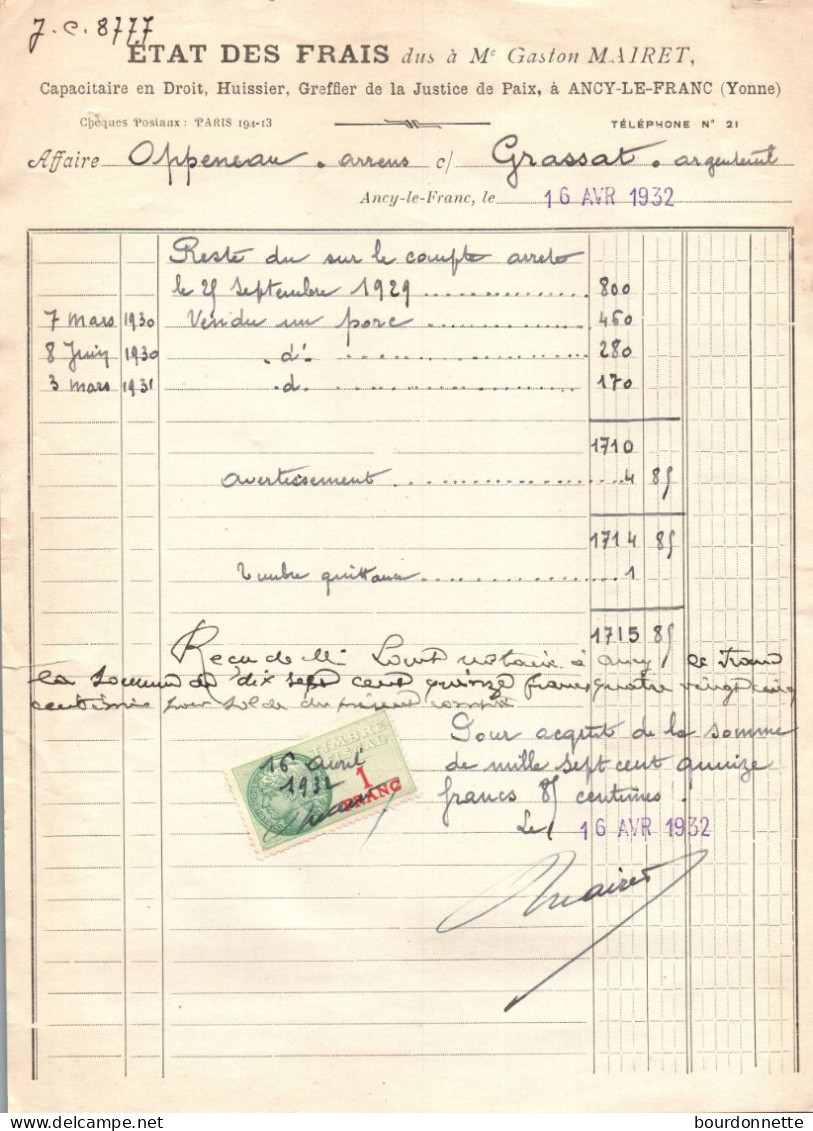 J.C. 8777
ÉTAT DES FRAIS dus à Me Gaston MAIRET,
Capacitaire en Droit, Huissier, Greffier de la Justice de Paix, à ANCY-LE-FRANC (Yonne)
Chèques Postaux : PARIS 194-13
TÉLÉPHONE N° 21
Affaire Oppeneau . arrens c/ Grassat .
Ancy-le-Franc, le 16 AVR 1932
Reste du sur le compte arreté
le 25 Septembre 1929 800
7 mars 1930 Vendu un porc 460
8 Juin 1930 d° 280
3 mars 1931 d. 170
1710
avertissement 4 85
1714 85
Timbre quittance 1
1715 85
Reçu de Me notaire à ancy le Franc
la somme de dix sept cent quinze francs quatre vingt cinq
centimes pour solde du présent compte
Pour acquit de la somme
de mille sept cent quinze
francs 85 centimes.
Le 16 AVR 1932
TIMBRE
FISCAL
1
FRANC
16 avril
1932
Mairet
Mairet
bourdonnette